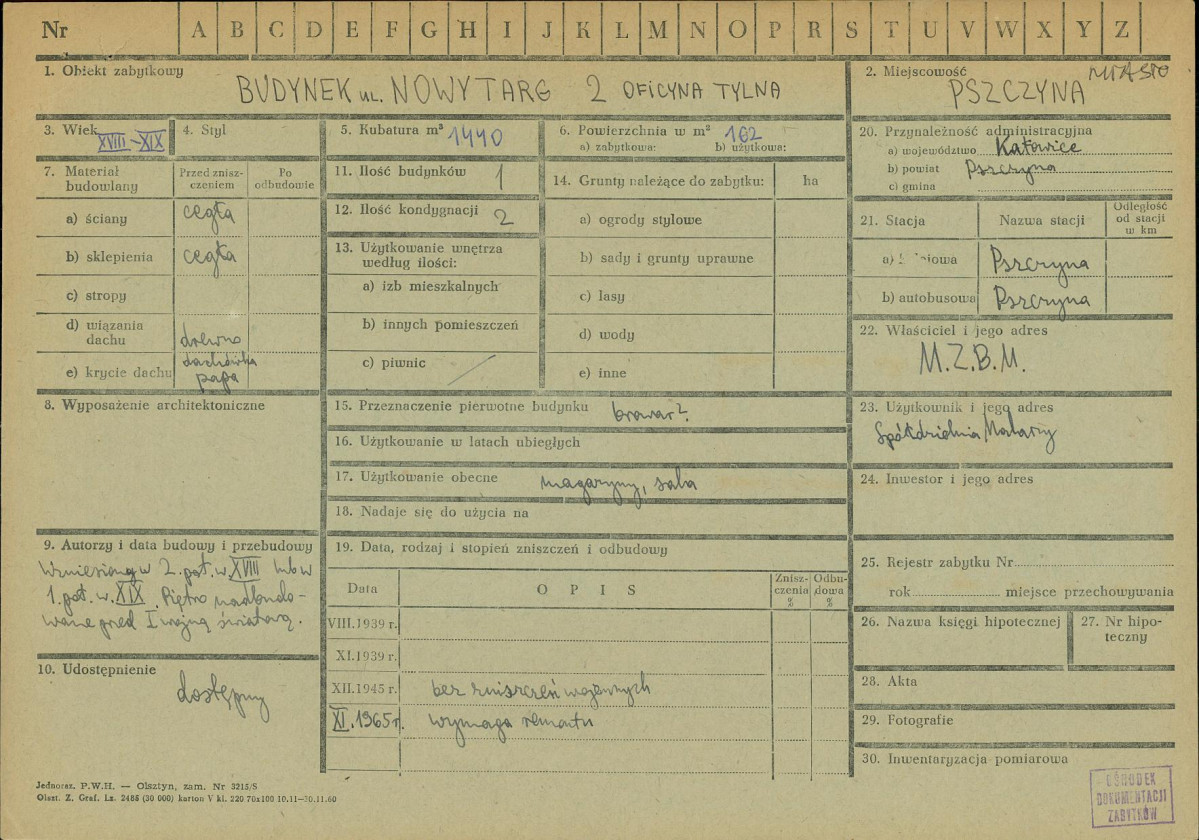 Nr A B C D E F G H I J K L M N O P R S T U V W X Y Z
1. Obiekt zabytkowy
BUDYNEK ul. NOWY TARG 2 OFICYNA TYLNA
2. Miejscowość MIASTO
PSZCZYNA
3. Wiek XVIII-XIX
4. Styl
5. Kubatura m³ 1440
6. Powierzchnia w m² 162
a) zabytkowa: b) użytkowa:
7. Materiał budowlany
Przed znisz-
czeniem
Po
odbudowie
a) ściany cegła
b) sklepienia cegła
c) stropy
d) wiązania
dachu drewno
e) krycie dachu dachówka
papa
8. Wyposażenie architektoniczne
9. Autorzy i data budowy i przebudowy
Wzniesiony w 2. poł. w. XVIII lub w
1. poł. w. XIX. Piętro nadbudo-
wane przed I wojną światową.
10. Udostępnienie
dostępny
11. Ilość budynków 1
12. Ilość kondygnacji 2
13. Użytkowanie wnętrza
według ilości:
a) izb mieszkalnych
b) innych pomieszczeń
c) piwnic /
14. Grunty należące do zabytku: ha
a) ogrody stylowe
b) sady i grunty uprawne
c) lasy
d) wody
e) inne
15. Przeznaczenie pierwotne budynku browar?
16. Użytkowanie w latach ubiegłych
17. Użytkowanie obecne magazyny, sala
18. Nadaje się do użycia na
19. Data, rodzaj i stopień zniszczeń i odbudowy
Data O P I S Znisz-
czenia
% Odbu-
dowa
%
VIII.1939 r.
XI.1939 r.
XII.1945 r. bez zniszczeń wojennych
XI.1965 r. wymaga remontu
20. Przynależność administracyjna
a) województwo Katowice
b) powiat Pszczyna
c) gmina
21. Stacja Nazwa stacji Odległość
od stacji
w km
a) Pszczyna
b) autobusowa Pszczyna
22. Właściciel i jego adres
M.Z.B.M.
23. Użytkownik i jego adres
Spółdzielnia Malarzy
24. Inwestor i jego adres
25. Rejestr zabytku Nr
rok miejsce przechowywania
26. Nazwa księgi hipotecznej
27. Nr hipo-
teczny
28. Akta
29. Fotografie
30. Inwentaryzacja pomiarowa
Jednoraz. P.W.H. — Olsztyn, zam. Nr 3215/S
Olszt. Z. Graf. Lz. 2485 (30 000) karton V kl. 220 70x100 10.11—30.11.60
OŚRODEK
DOKUMENTACJI
ZABYTKÓW